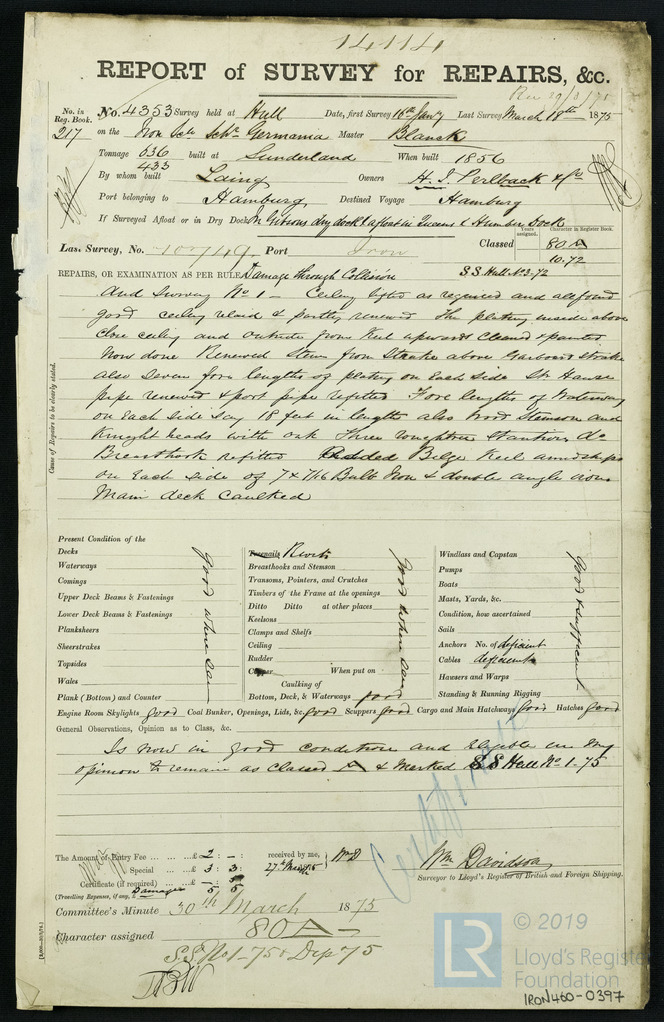 14114
REPORT of SURVEY for REPAIRS, &c.
Rec 29/3/75
No. in Reg. Book. No. 4353 Survey held at Hull Date, first Survey 16th Jany Last Survey March 18th 1875
217 on the Iron Sc. Schr Germania Master Blanck
Tonnage 636 433 built at Sunderland When built 1856
By whom built Laing Owners H. J. Perlback & Co
Port belonging to Hamburg Destined Voyage Hamburg
If Surveyed Afloat or in Dry Dock In Gibsons dry dock & afloat in Queens & Humber Dock
Years assigned. Character in Register Book.
Last Survey, No. Port Iron Classed 80 A
10.72
REPAIRS, OR EXAMINATION AS PER RULE, Damage through Collision SS Hull No 3-72
And Survey No 1 - Ceiling lifted as required and all found
good ceiling relaid & partly renewed The plating inside above
close ceiling and outside from Keel upwards cleaned & painted
Now done Renewed Stem from Strake above Garboard strake
also Seven fore lengths of plating on Each side St. Hawse
pipe renewed & port pipe refitted Fore lengths of Waterway
on Each side say 18 feet in length also wood Stemson and
Knight heads with oak Three roughtree Stantions do
Breasthook refitted Added Bilge Keel amidships
on Each side of 7 x 7/16 Bulb Iron & double angle irons
Main deck caulked
Cause of Repairs to be clearly stated.
Present Condition of the
Decks
Waterways
Comings
Upper Deck Beams & Fastenings
Lower Deck Beams & Fastenings
Planksheers
Sheerstrakes
Topsides
Wales
Plank (Bottom) and Counter
good where seen
Treenails Rivets
Breasthooks and Stemson
Transoms, Pointers, and Crutches
Timbers of the Frame at the openings
Ditto Ditto at other places
Keelsons
Clamps and Shelfs
Ceiling
Rudder
Copper When put on
Caulking of
Bottom, Deck, & Waterways good
good where seen
Windlass and Capstan
Pumps
Boats
Masts, Yards, &c.
Condition, how ascertained
Sails
Anchors No. of deficient
Cables deficient
Hawsers and Warps
Standing & Running Rigging
good & sufficient
Engine Room Skylights good Coal Bunker, Openings, Lids, &c. good Scuppers good Cargo and Main Hatchways good Hatches good
General Observations, Opinion as to Class, &c.
Is now in good condition and Eligible in my
opinion to remain as Classed A & Marked SS Hull No 1-75
Certificate
The Amount of Entry Fee £ 2 : - : received by me, WD
Special £ 3 : 3 : 27th March 1875
Certificate (if required) £ - : 5
(Travelling Expenses, if any, £ ) Damages 5 5
Wm Davidson
Surveyor to Lloyd's Register of British and Foreign Shipping.
Committee's Minute 30th March 1875
Character assigned 80 A
S.S. No 1-75 & Dep 75
© 2019
LR
Lloyd's Register
Foundation
IRON460-0397